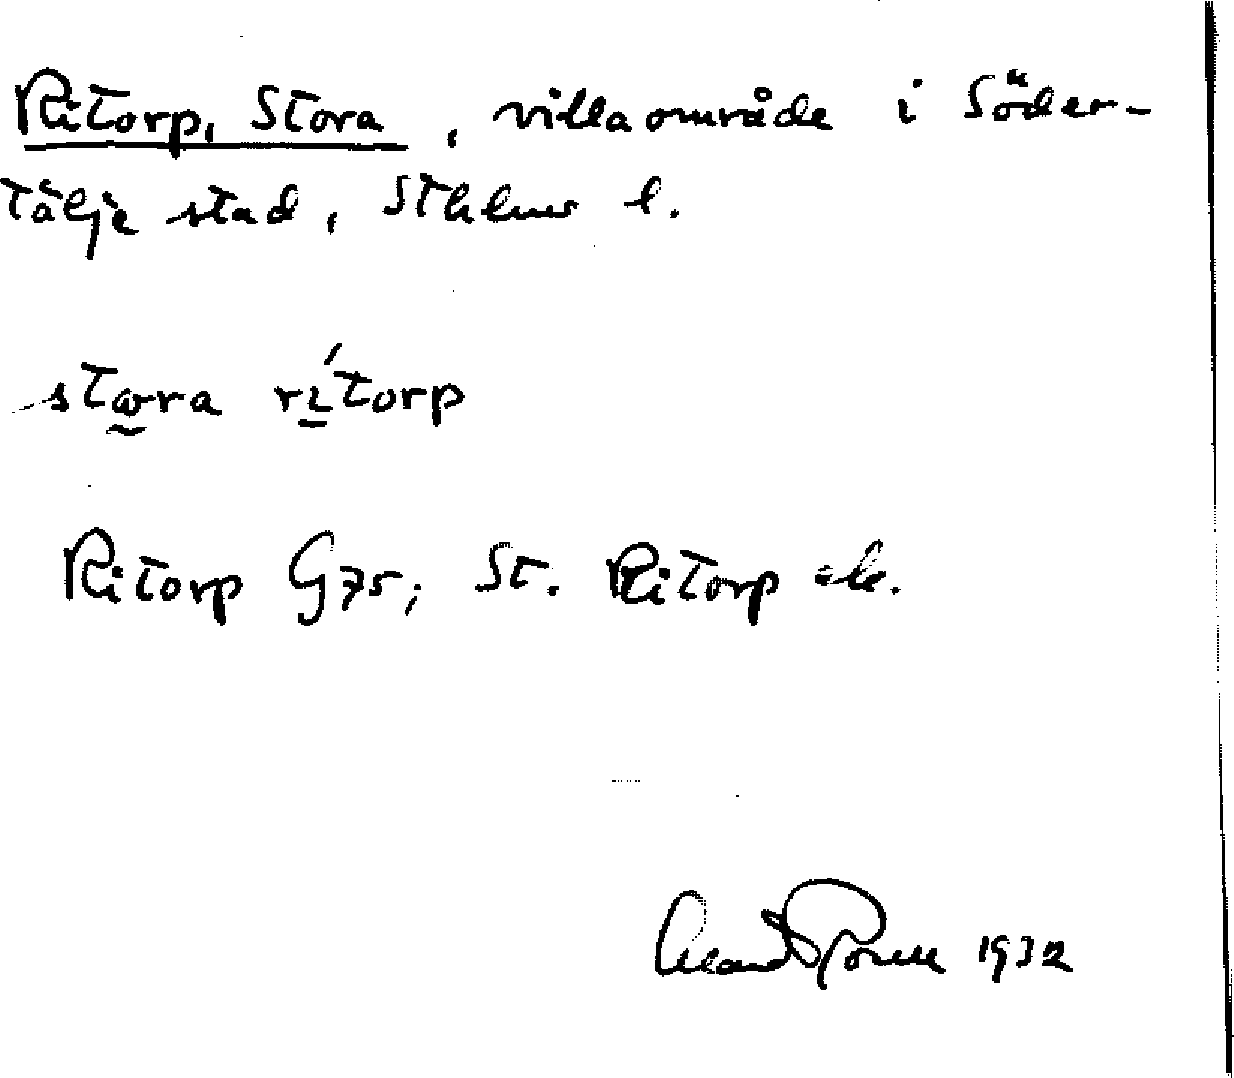 Ritorp, Stora, villaområde i Söder-
tälje stad, Sthlms l.
stωra rítorp
Ritorp G75; St. Ritorp ek.
1932